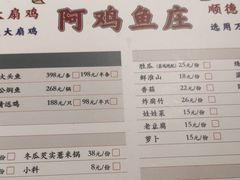 大扇鸡
阿鸡鱼庄
顺德
大扇鸡
选用
大头鱼 398元/条 198元/半条
公焖鱼 268元/锅
清远鸡 188元/只 98元/半只
冬瓜芡实薏米锅 38元/份
小料 8元/份
胜瓜 25元/份
鲜淮山 18元/份
香菇 22元/份
炸腐竹 26元/份
娃娃菜 15元/份
老豆腐 15元/份
萝卜 15元/份